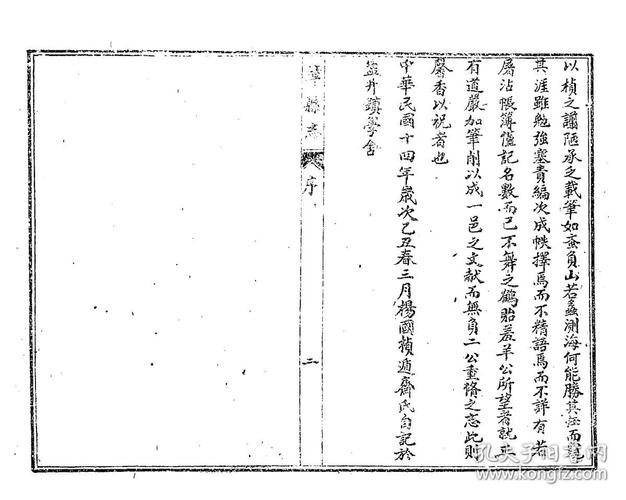 以楨之譾陋承之載筆如蚉負山若蠡測海何能勝其任而
其涯雖勉強塞責編次成帙擇焉而不精語焉而不詳有若
屠沽帳簿僅記名數而已不舞之鶴貽羞羊公所望者就正
有道嚴加筆削以成一邑之文献而無負二公重脩之志此則
馨香以祝者也
中華民國十四年歲次乙丑春三月楊國楨遁齋氏自記於
盐井鎮學舍
縣志
序
二
孔夫子旧书网
kongfz.com